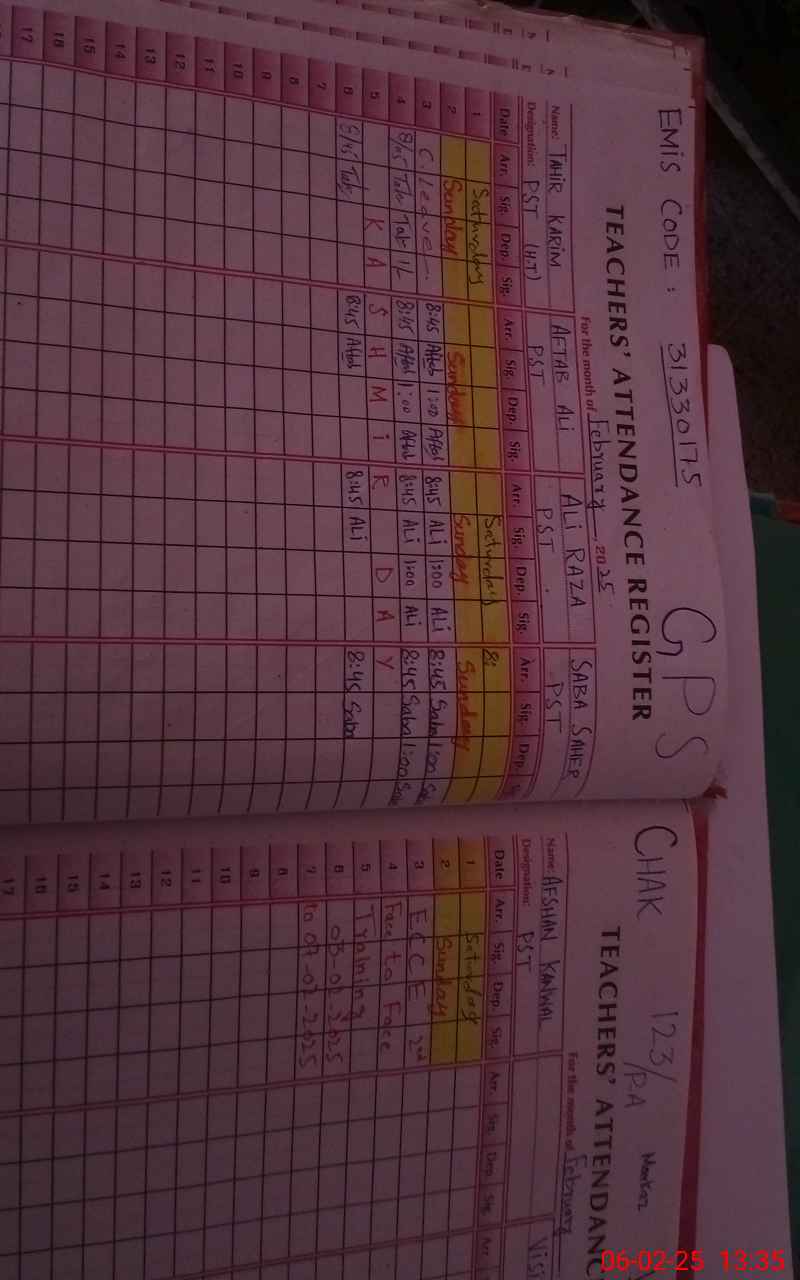 EMIS CODE : 31330175 GPS
TEACHERS' ATTENDANCE REGISTER
For the month of February, 2025
Name: TAHIR KARIM AFTAB ALI ALI RAZA SABA SAHER
Designation: PST (H.T) PST PST PST
Date Arr. Sig. Dep. Sig. Arr. Sig. Dep. Sig. Arr. Sig. Dep. Sig. Arr. Sig. Dep.
1 Sathurday Saturday 8:
2 Sunday Sunday Sunday Sunday
3 C. Leave 8:45 Aftab 1:00 Aftab 8:45 ALi 1:00 ALi 8:45 Saba 1:00
4 8/45 8:45 Aftab 1:00 Aftab 8:45 ALi 1:00 ALi 8:45 Saba 1:00
5 K A S H M i R D A Y
6 8/45 8:45 Aftab 8:45 ALi 8:45 Saba
7
8
9
10
11
12
13
14
15
16
17
CHAK 123/P.A Markaz
TEACHERS' ATTENDANC
For the month of February
Name: AFSHAN KANWAL
Designation: PST
Date Arr. Sig. Dep. Sig. Arr. Sig. Dep. Sig. Arr.
1 Saturday
2 Sunday
3 ECCE 2nd
4 Face to Face
5 Training
6 03-02-2025
7 to 07-02-2025
8
9
10
11
12
13
14
15
16
17
06-02-25 13:35